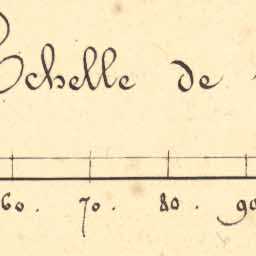 Echelle de
60. 70. 80. 90